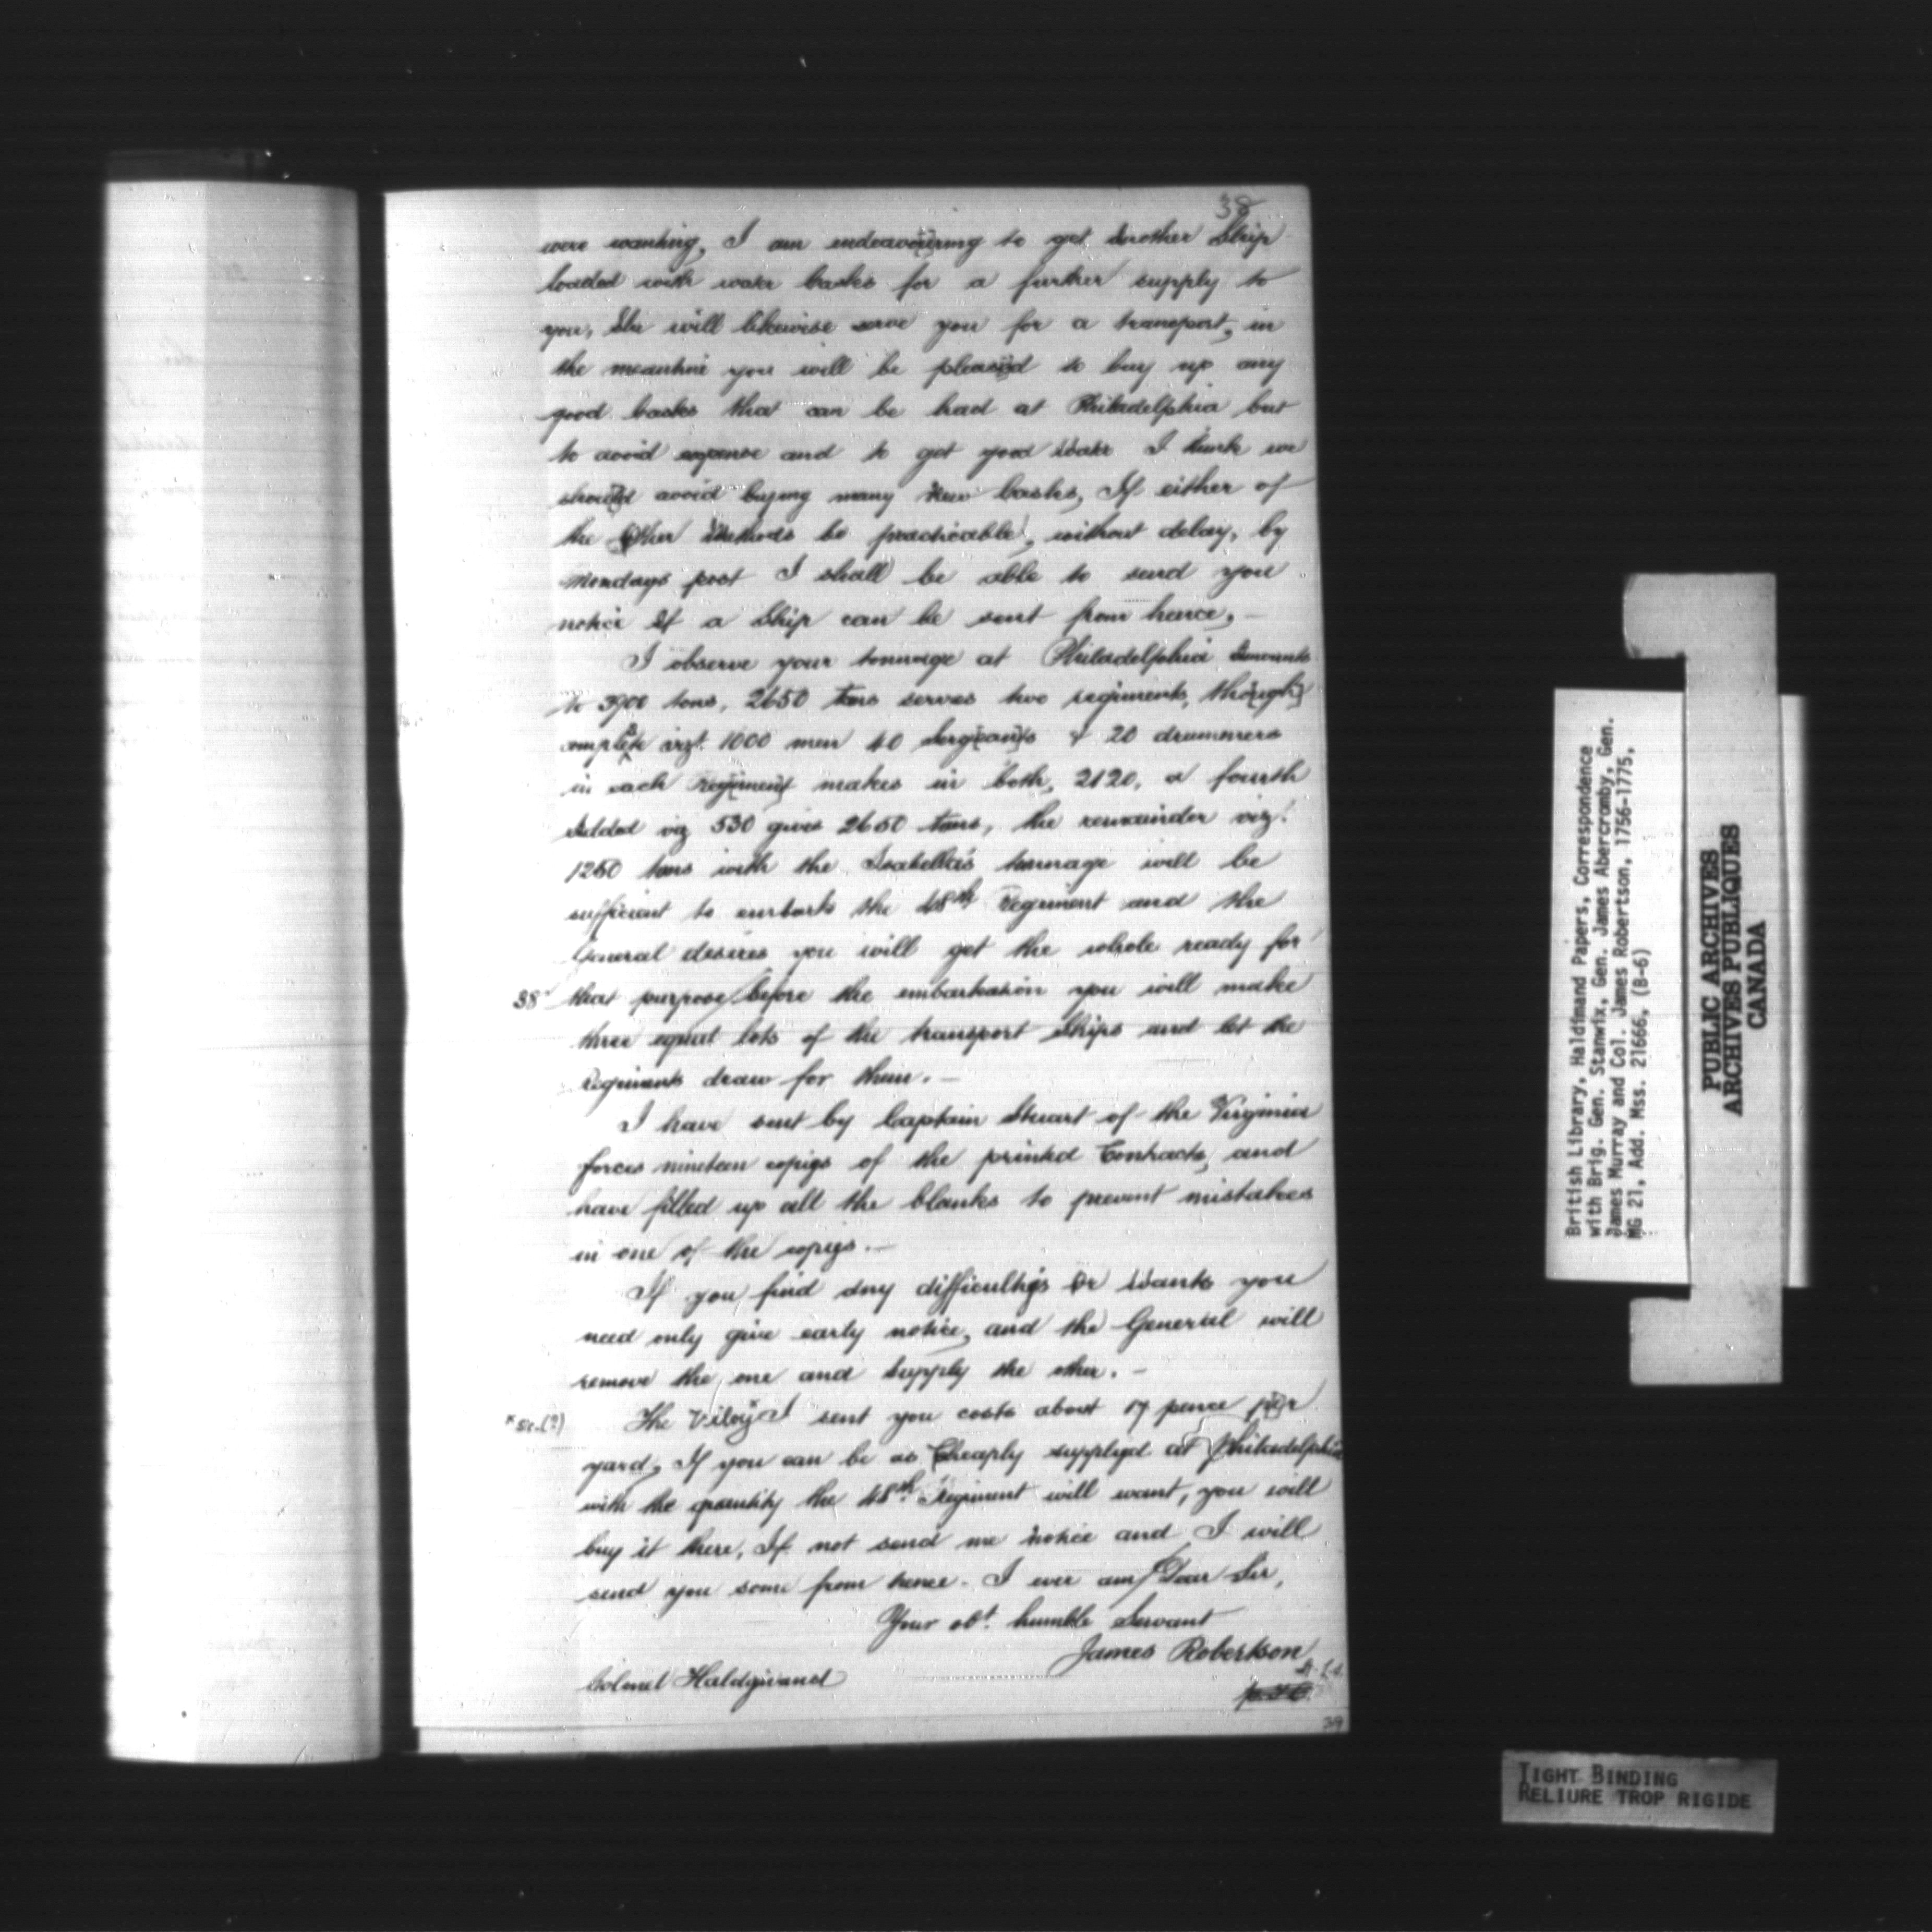 38
were wanting, I am endeavouring to get another Ship
loaded with water casks for a further supply to
you, She will likewise serve you for a transport, in
the meantime you will be pleased to buy up any
good casks that can be had at Philadelphia but
to avoid expense and to get good Water I think we
should avoid buying many New casks, If either of
the Other Methods be practicable, without delay, by
Mondays post I shall be able to send you
notice If a Ship can be sent from hence,—
I observe your tonnage at Philadelphia Amounts
to 3900 tons, 2650 tons serves two regiments, though
complete vizt. 1000 men 40 Sergeants & 20 drummers
in each regiment makes in both, 2120, a fourth
Added viz 530 gives 2650 tons, the remainder vizt.
1250 tons with the Isabella's tonnage will be
sufficient to embark the 48th Regiment and the
General desires you will get the whole ready for
38 that purpose/before the embarkation you will make
three equal lots of the transport Ships and let the
Regiments draw for them.—
I have sent by Captain Stuart of the Virginia
forces nineteen copies of the printed Contracts, and
have filled up all the blanks to prevent mistakes
in one of the copies.—
If you find any difficultys Or Wants you
need only give early notice, and the General will
remove the one and Supply the other.—
* sic.(?) The Viloy* I sent you costs about 17 pence per
yard, If you can be as Cheaply supplyed at Philadelphia
with the quantity the 48th Regiment will want, you will
buy it there, If not send me notice and I will
send you some from hence. I ever am/Dear Sir,
Your obt. humble Servant
James Robertson
Colonel Haldimand
39
British Library, Haldimand Papers, Correspondence
with Brig. Gen. Stanwix, Gen. James Abercromby, Gen.
James Murray and Col. James Robertson, 1756-1775,
MG 21, Add. Mss. 21666, (B-6)
PUBLIC ARCHIVES
ARCHIVES PUBLIQUES
CANADA
TIGHT BINDING
RELIURE TROP RIGIDE